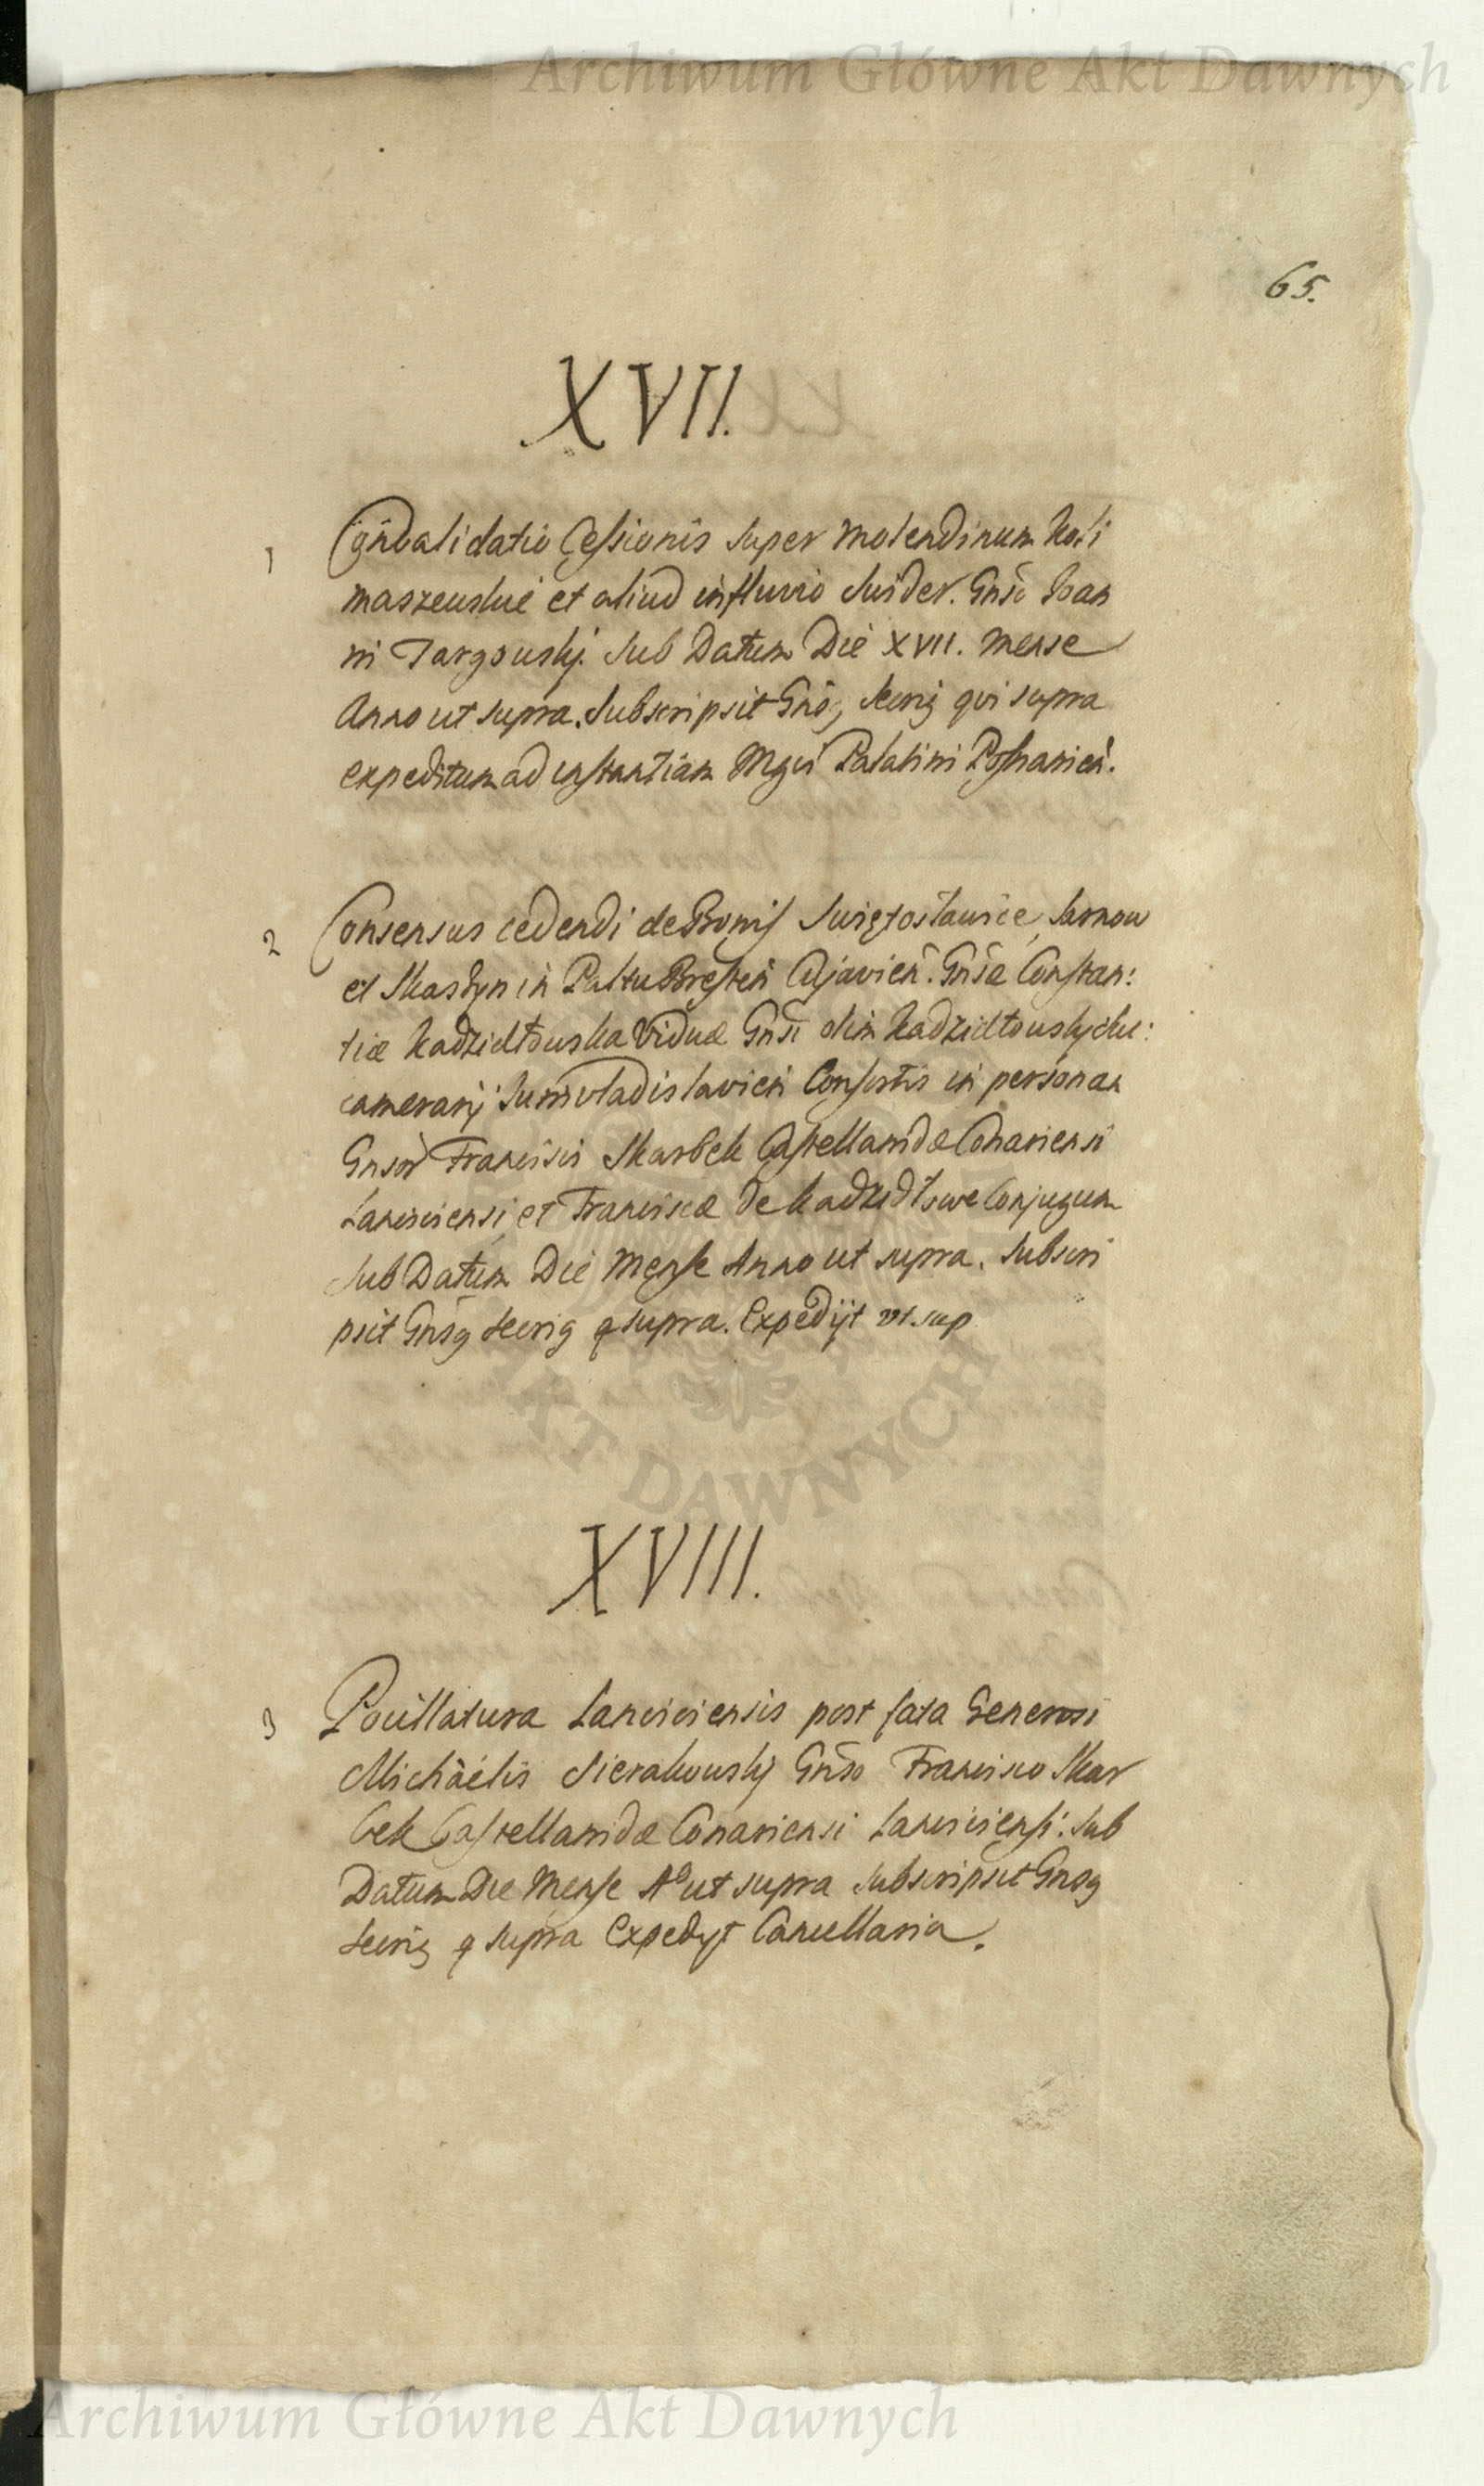 Archiwum Główne Akt Dawnych
65.
XVII.
1 Convalidatio Cessionis super molendinum Koli
maszewskie et aliud in fluvio Swider. Gnso Joan
ni Targowskj. Sub Datum Die XVII. Mense
Anno ut supra. Subscripsit Gnosq Secrig qvi supra
expeditum ad instantiam Mgci Palatini Posnanien.
2 Consensus cedendi de Bonis Swiętosławice, Sarnow
et Skaszyn in Paltu Bresten Cujavien. Gnsæ Constan:
tiæ Kadzidłowska Viduæ Gnsi olim Kadzidłowskj Suc:
camerarij Junivladislavien Consortis in personam
Gnsor Francisci Skarbek Castellanidæ Conariensi
Lanciciensi et Franciscæ de Kadzidłowe Conjugum
Sub Datum Die Mense Anno ut supra. Subscri
psit Gnsq Secrig q supra. Expedijt ut sup
AKT DAWNYCH
XVIII.
3 Pocillatura Lanciciensis post fata Generosi
Michaelis Sierakowskj Gnso Francisco Skar
bek Castellanidæ Conariensi Lanciciensi. Sub
Datum Die Mense Aº ut supra subscripsit Gnosq
Secrig q supra Expedyt Cancellaria.
Archiwum Główne Akt Dawnych